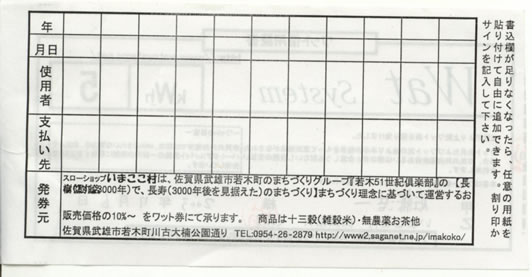 書込欄が足りなくなったら、任意の用紙を
貼り付けて自由に追加できます。割り印か
サインを記入して下さい。
年
月日
使用者
支払い先
発券元
スローショップいまここ村は、佐賀県武雄市若木町のまちづくりグループ『若木51世紀倶楽部』の【長
樹(樹齢3000年)で、長寿(3000年後を見据えた)のまちづくり】まちづくり理念に基づいて運営するお
販売価格の10%~ をワット券にて承ります。 商品は十三穀(雑穀米)・無農薬お茶他
佐賀県武雄市若木町川古大楠公園通り TEL:0954-26-2879 http://www2.saganet.ne.jp/imakoko/
Wat System
5
kWh